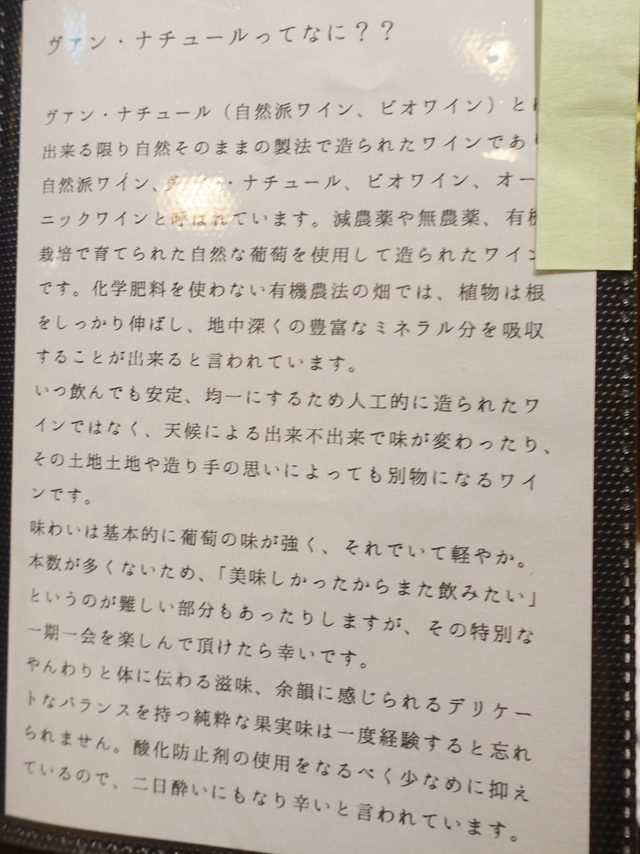 ヴァン・ナチュールってなに？？
ヴァン・ナチュール（自然派ワイン、ビオワイン）と
出来る限り自然そのままの製法で造られたワインであ
自然派ワイン、ヴァン・ナチュール、ビオワイン、オー
ニックワインと呼ばれています。減農薬や無農薬、有機
栽培で育てられた自然な葡萄を使用して造られたワイン
です。化学肥料を使わない有機農法の畑では、植物は根
をしっかり伸ばし、地中深くの豊富なミネラル分を吸収
することが出来ると言われています。
いつ飲んでも安定、均一にするため人工的に造られたワ
インではなく、天候による出来不出来で味が変わったり、
その土地土地や造り手の思いによっても別物になるワイ
ンです。
味わいは基本的に葡萄の味が強く、それでいて軽やか。
本数が多くないため、「美味しかったからまた飲みたい」
というのが難しい部分もあったりしますが、その特別な
一期一会を楽しんで頂けたら幸いです。
やんわりと体に伝わる滋味、余韻に感じられるデリケー
トなバランスを持つ純粋な果実味は一度経験すると忘れ
られません。酸化防止剤の使用をなるべく少なめに抑え
ているので、二日酔いにもなり辛いと言われています。